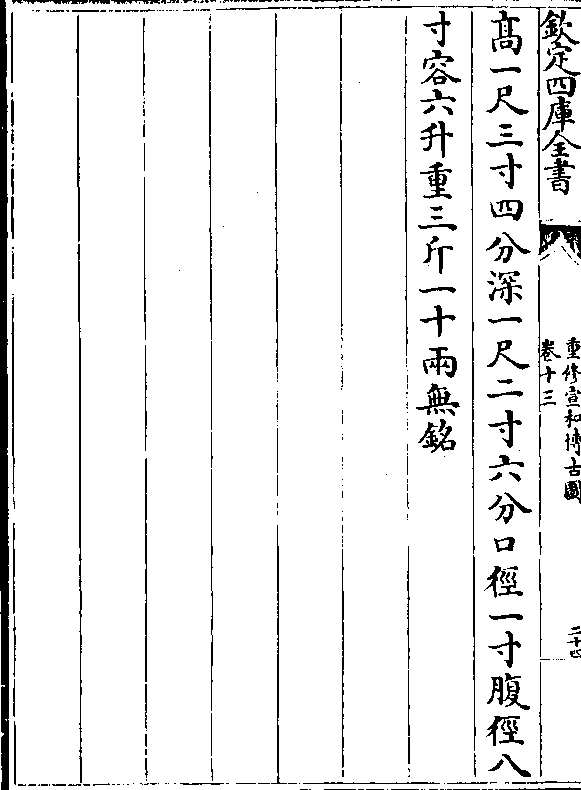 欽定四庫全書
重修宣和博古圖
卷十三
二十四
高一尺三寸四分深一尺二寸六分口徑一寸腹徑八
寸容六升重三斤一十兩無銘